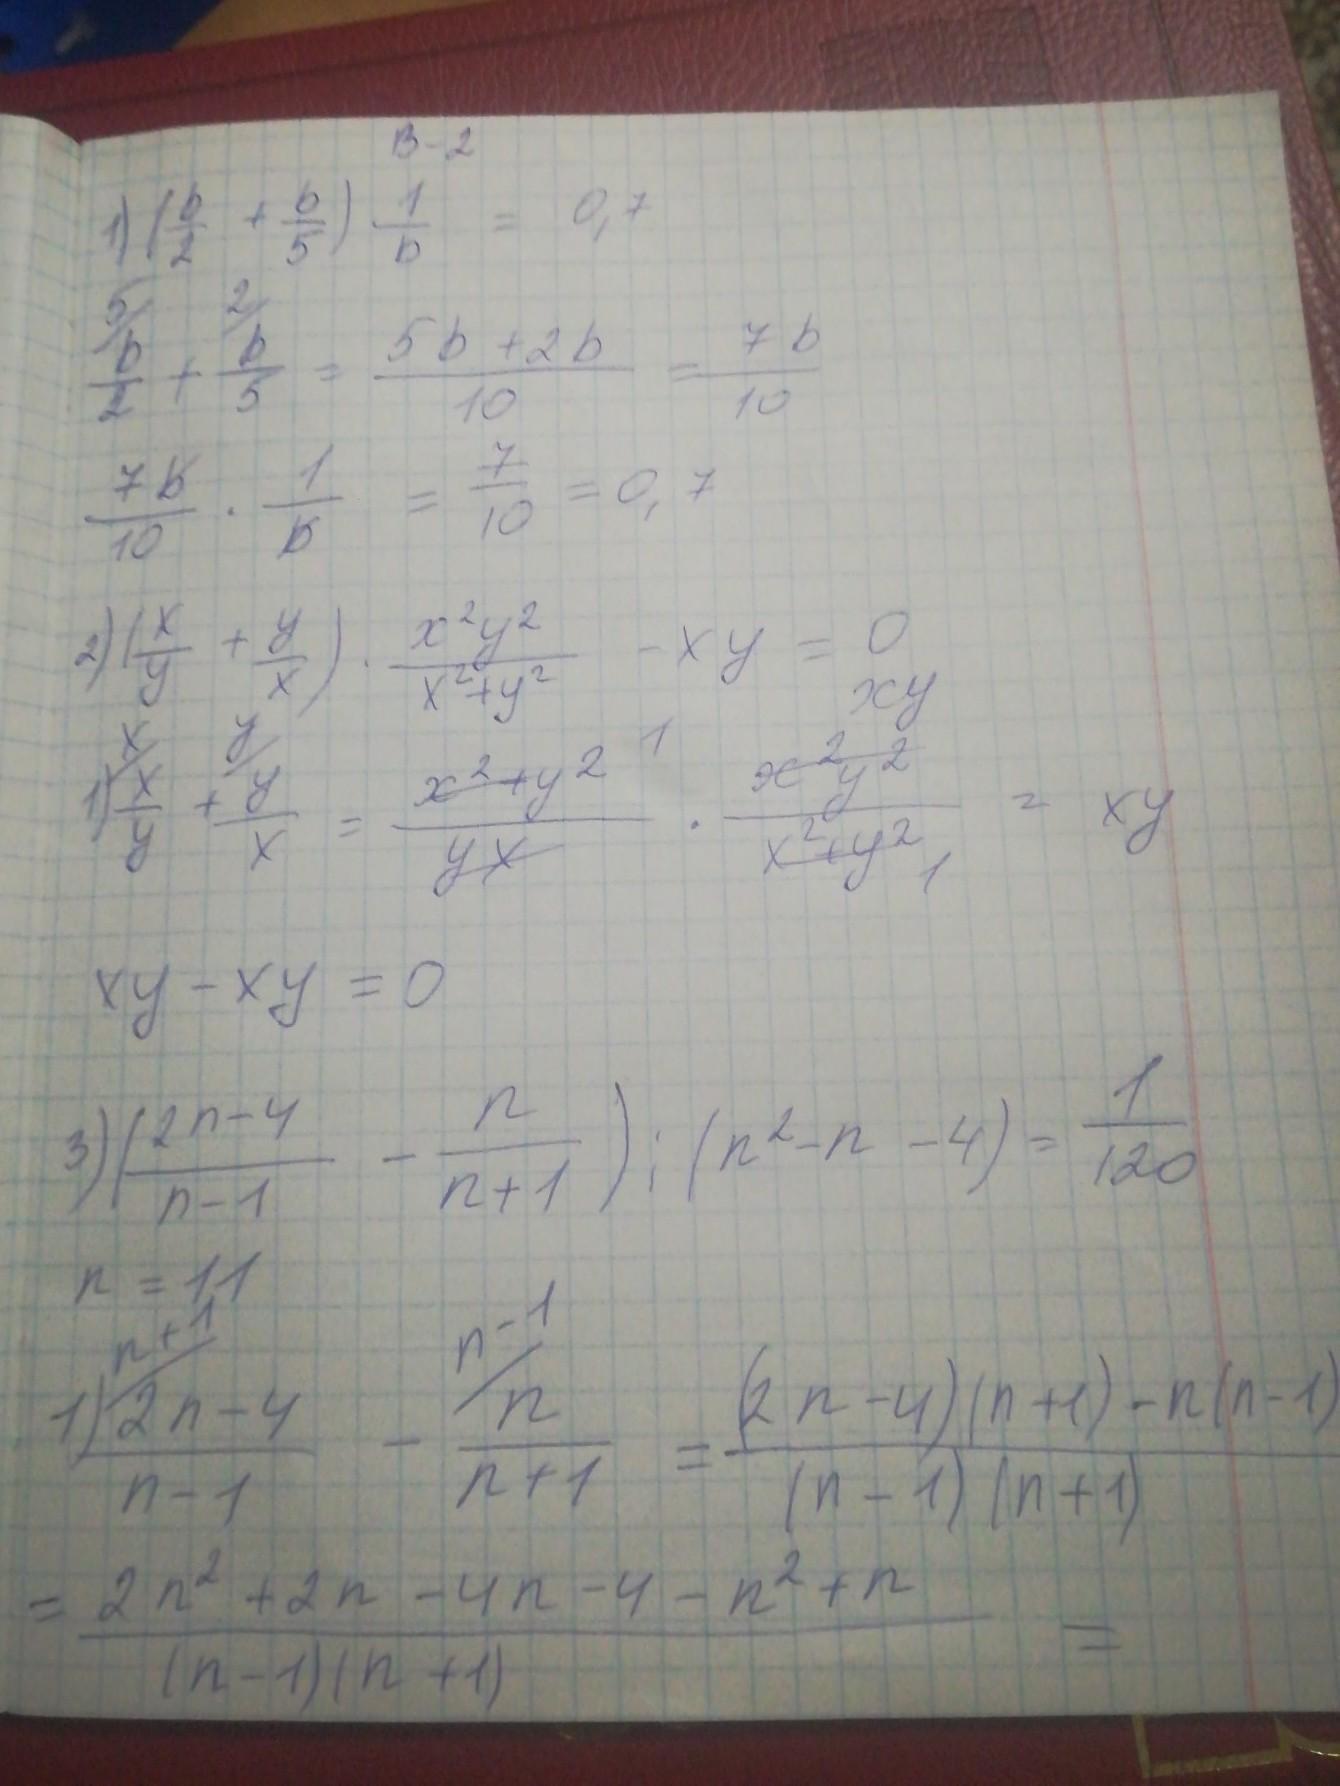 В-2
1) (b/2 + b/5) 1/b = 0,7
5/ b/2 + 2/ b/5 = (5b + 2b)/10 = 7b/10
7b/10 · 1/b = 7/10 = 0,7
2) (x/y + y/x) · x²y²/(x²+y²) - xy = 0
1) x/ x/y + y/ y/x = (x²+y²)/yx 1 · x²y²/(x²+y²) xy 1 = xy
xy - xy = 0
3) ((2n-4)/(n-1) - n/(n+1)) : (n² - n - 4) = 1/120
n = 11
1) n+1/ (2n-4)/(n-1) - n-1/ n/(n+1) = ((2n-4)(n+1) - n(n-1))/((n-1)(n+1))
= (2n² + 2n - 4n - 4 - n² + n)/((n-1)(n+1)) =